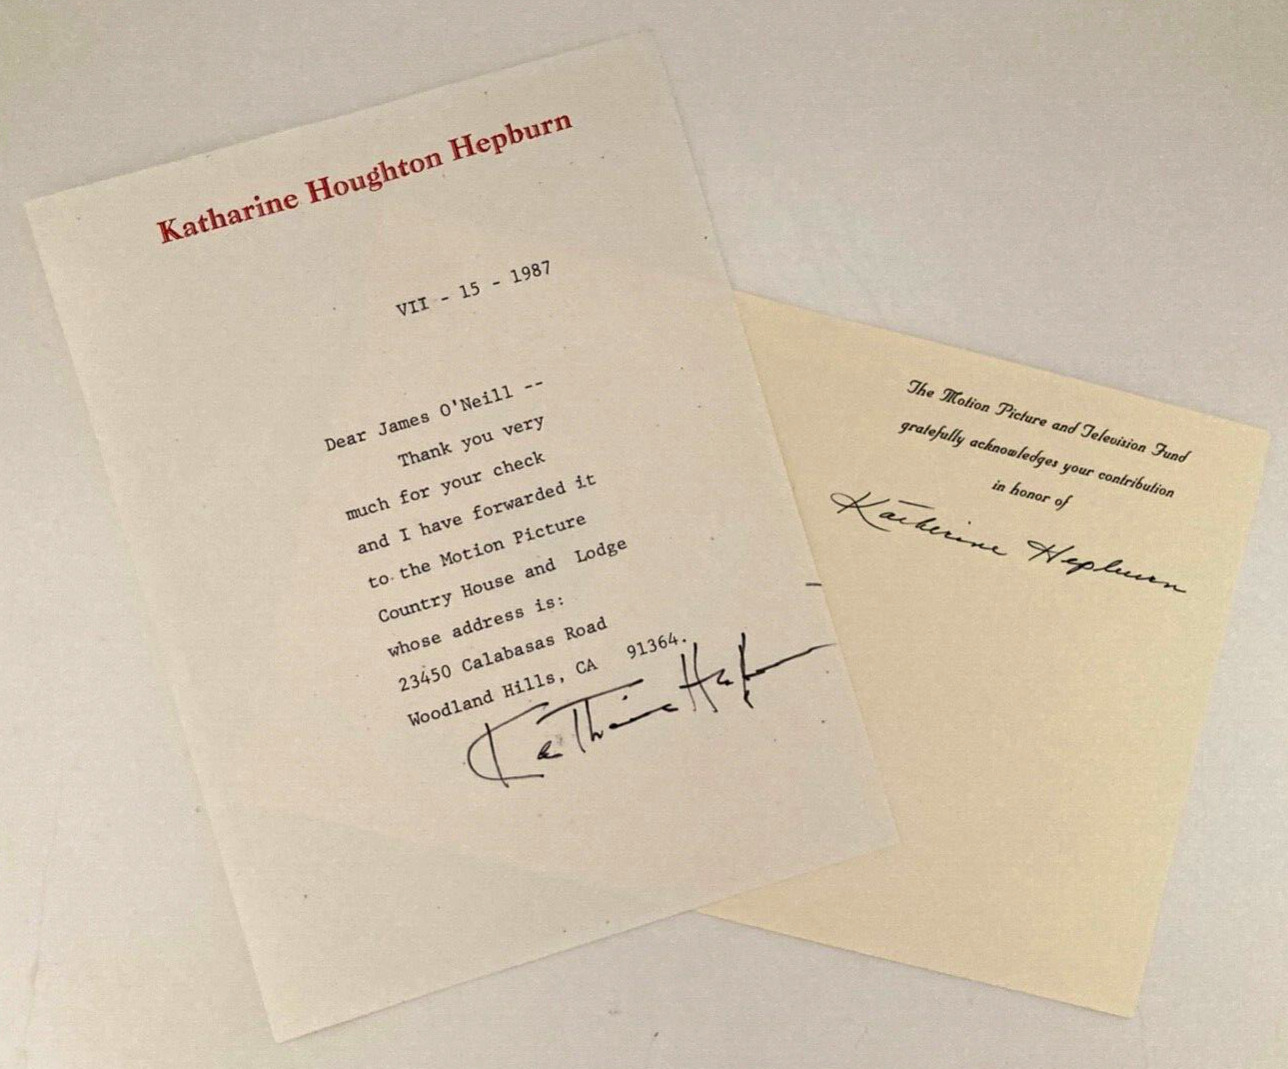 Katharine Houghton Hepburn
VII - 15 - 1987
Dear James O'Neill --
Thank you very
much for your check
and I have forwarded it
to the Motion Picture
Country House and Lodge
whose address is:
23450 Calabasas Road
Woodland Hills, CA 91364.
Katharine Hepburn
The Motion Picture and Television Fund
gratefully acknowledges your contribution
in honor of
Katherine Hepburn